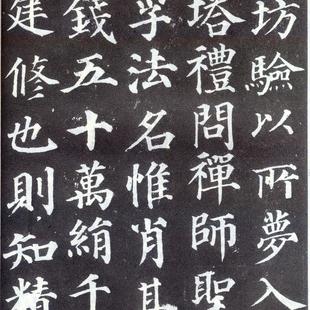 坊驗以所夢入
塔禮問禪師聖
孚法名惟肖其
錢五十萬絹千
建修也則知精